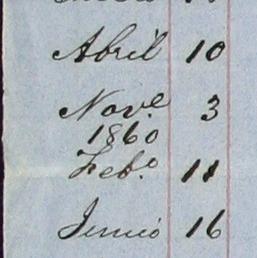 Abril 10
Nov.e 3
1860
Feb.o 11
Junio 16